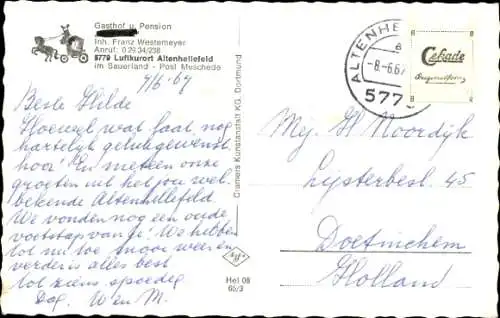 Gasthof u. Pension
Inh. Franz Westemeyer
Anruf: 0 29 34/238
5779 Luftkurort Altenhellefeld
im Sauerland - Post Meschede
7/6-67
Beste Hilde
Hoewel wat laat nog
hartelijk gelukgewenst
hoor! En meteen onze
groeten uit het jou wel-
bekende Altenhellefeld.
We vonden nog een oude
voetstap van je! We hebben
tot nu toe mooi weer en
verder is alles best
tot ziens spoedig
Dag. W en M.
Cramers Kunstanstalt KG, Dortmund
Hel 08
65/3
ALTENHE
a
-8.-6.67
577
Cekade
Mej. H Noordijk
Lijsterbesl. 45
Doetinchem
Holland